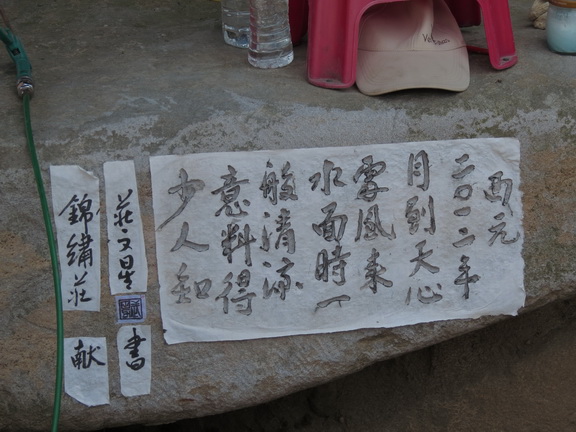 西元
二〇一二年
月到天心
處風來
水面時一
般清涼
意料得
少人知
莊文星
書
錦繡莊
献